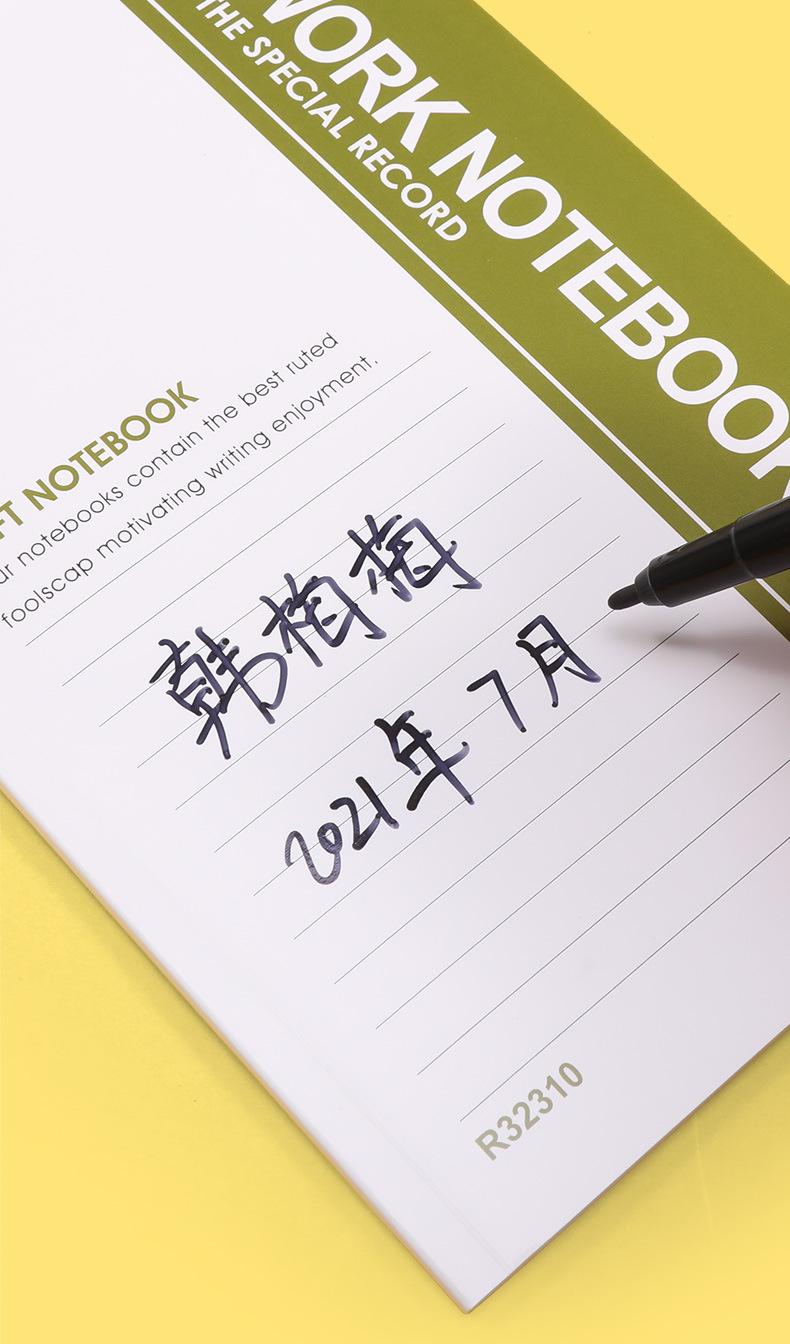 WORK NOTEBOOK
THE SPECIAL RECORD
FT NOTEBOOK
ur notebooks contain the best ruted
foolscap motivating writing enjoyment.
韩梅梅
2021年7月
R32310